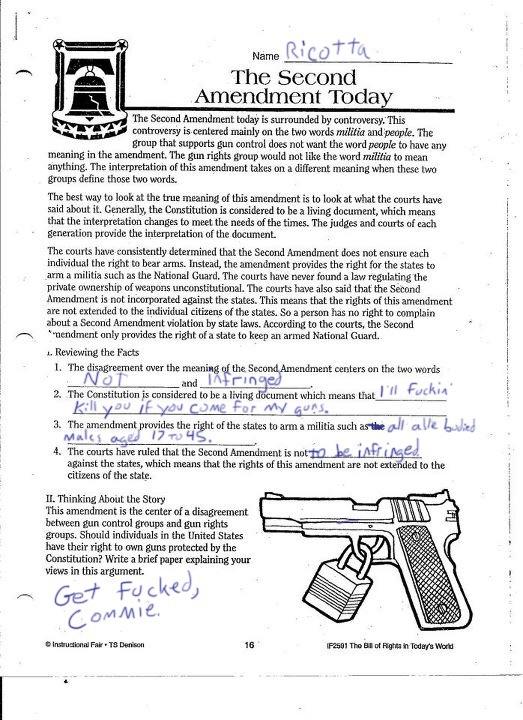 Name Ricotta
The Second
Amendment Today
The Second Amendment today is surrounded by controversy. This
controversy is centered mainly on the two words militia and people. The
group that supports gun control does not want the word people to have any
meaning in the amendment. The gun rights group would not like the word militia to mean
anything. The interpretation of this amendment takes on a different meaning when these two
groups define those two words.
The best way to look at the true meaning of this amendment is to look at what the courts have
said about it. Generally, the Constitution is considered to be a living document, which means
that the interpretation changes to meet the needs of the times. The judges and courts of each
generation provide the interpretation of the document.
The courts have consistently determined that the Second Amendment does not ensure each
individual the right to bear arms. Instead, the amendment provides the right for the states to
arm a militia such as the National Guard. The courts have never found a law regulating the
private ownership of weapons unconstitutional. The courts have also said that the Second
Amendment is not incorporated against the states. This means that the rights of this amendment
are not extended to the individual citizens of the states. So a person has no right to complain
about a Second Amendment violation by state laws. According to the courts, the Second
mendment only provides the right of a state to keep an armed National Guard.
I. Reviewing the Facts
1. The disagreement over the meaning of the Second Amendment centers on the two words
Not and infringed.
2. The Constitution is considered to be a living document which means that I'll Fuckin'
Kill you if you come for my guns.
3. The amendment provides the right of the states to arm a militia such as the all able bodied
males aged 17 to 45.
4. The courts have ruled that the Second Amendment is not to be infringed
against the states, which means that the rights of this amendment are not extended to the
citizens of the state.
II. Thinking About the Story
This amendment is the center of a disagreement
between gun control groups and gun rights
groups. Should individuals in the United States
have their right to own guns protected by the
Constitution? Write a brief paper explaining your
views in this argument.
Get Fucked,
Commie.
© Instructional Fair • TS Denison 16 IF2501 The Bill of Rights in Today's World